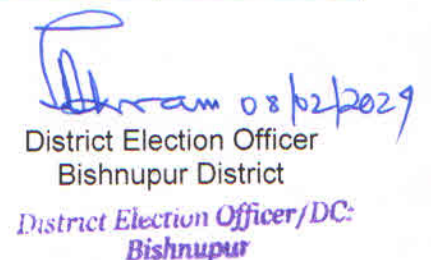 08/02/2024
District Election Officer
Bishnupur District
District Election Officer/DC:
Bishnupur